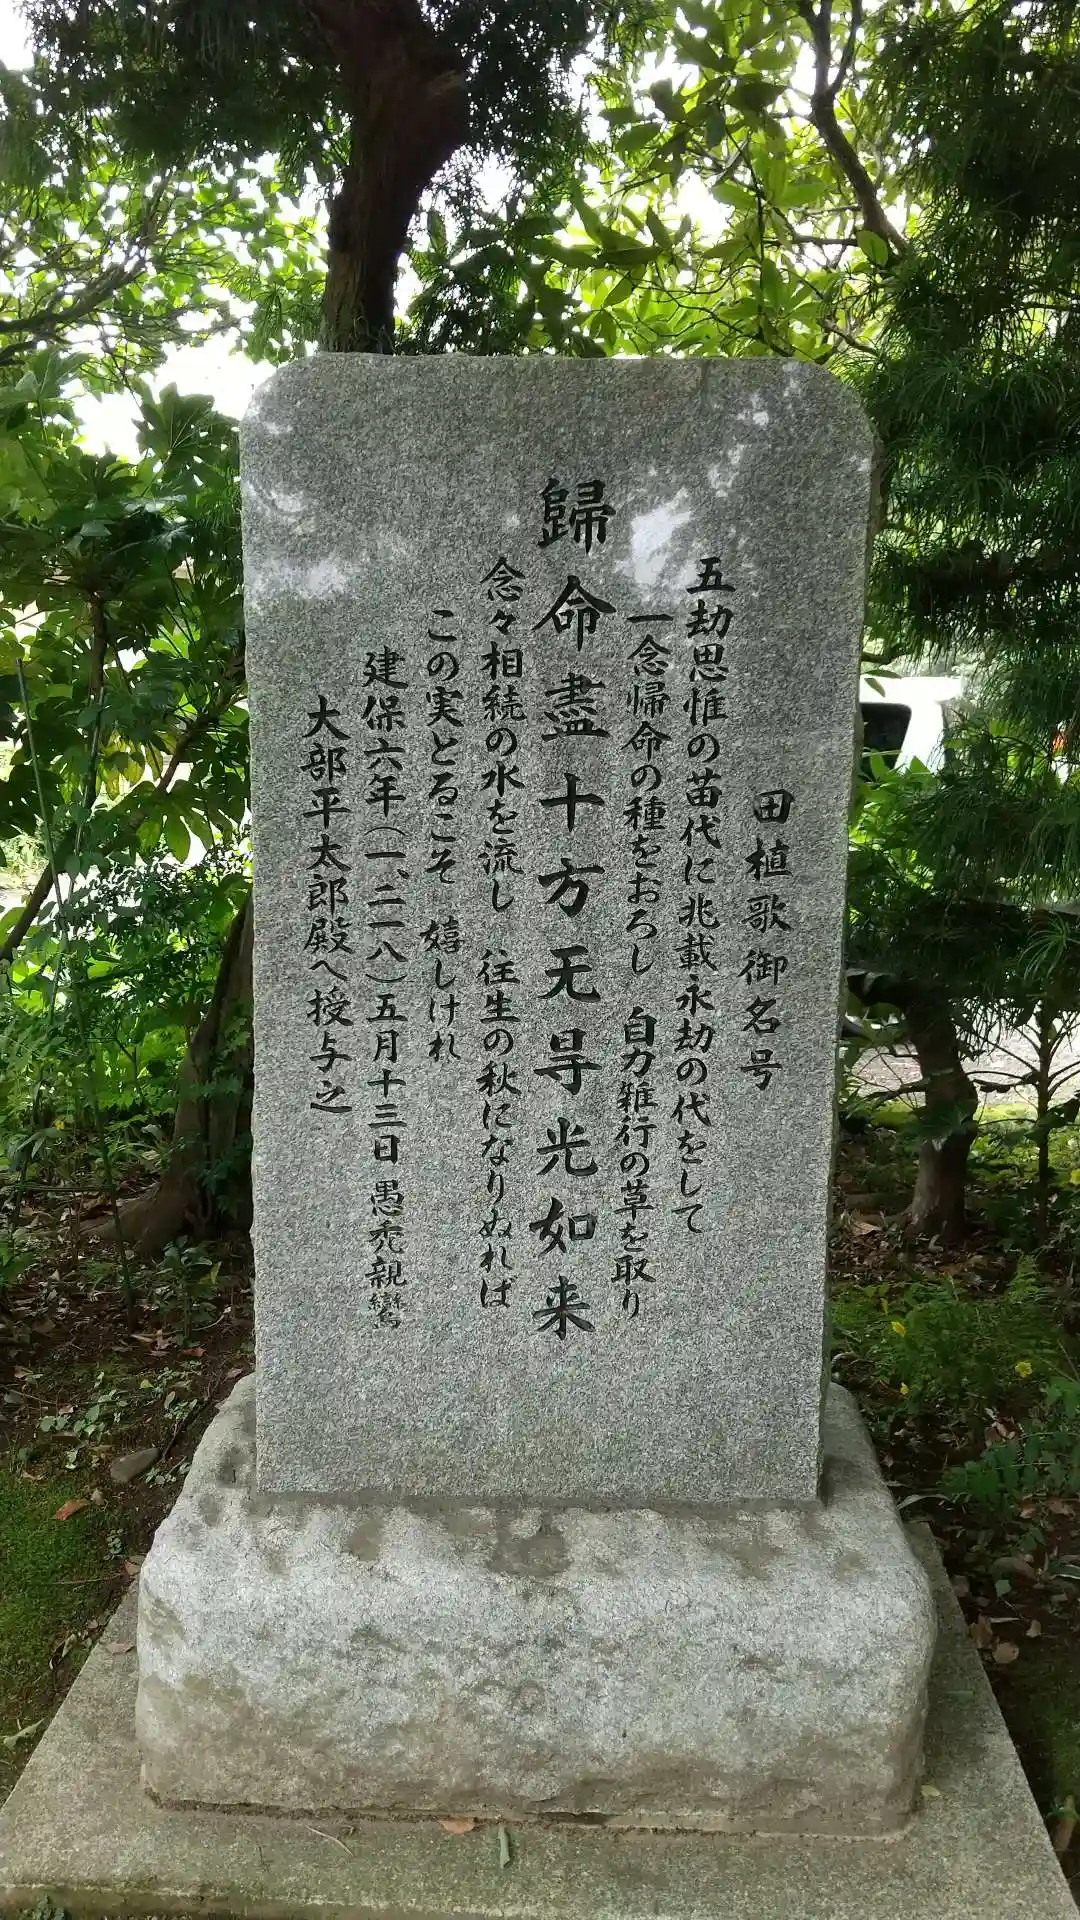 田植歌御名号
五劫思惟の苗代に兆載永劫の代をして
一念帰命の種をおろし　自力雑行の草を取り
歸命盡十方无㝵光如来
念々相続の水を流し　往生の秋になりぬれば
この実とるこそ　嬉しけれ
建保六年（一、二一八）五月十三日　愚禿親鸞
大部平太郎殿へ授与之